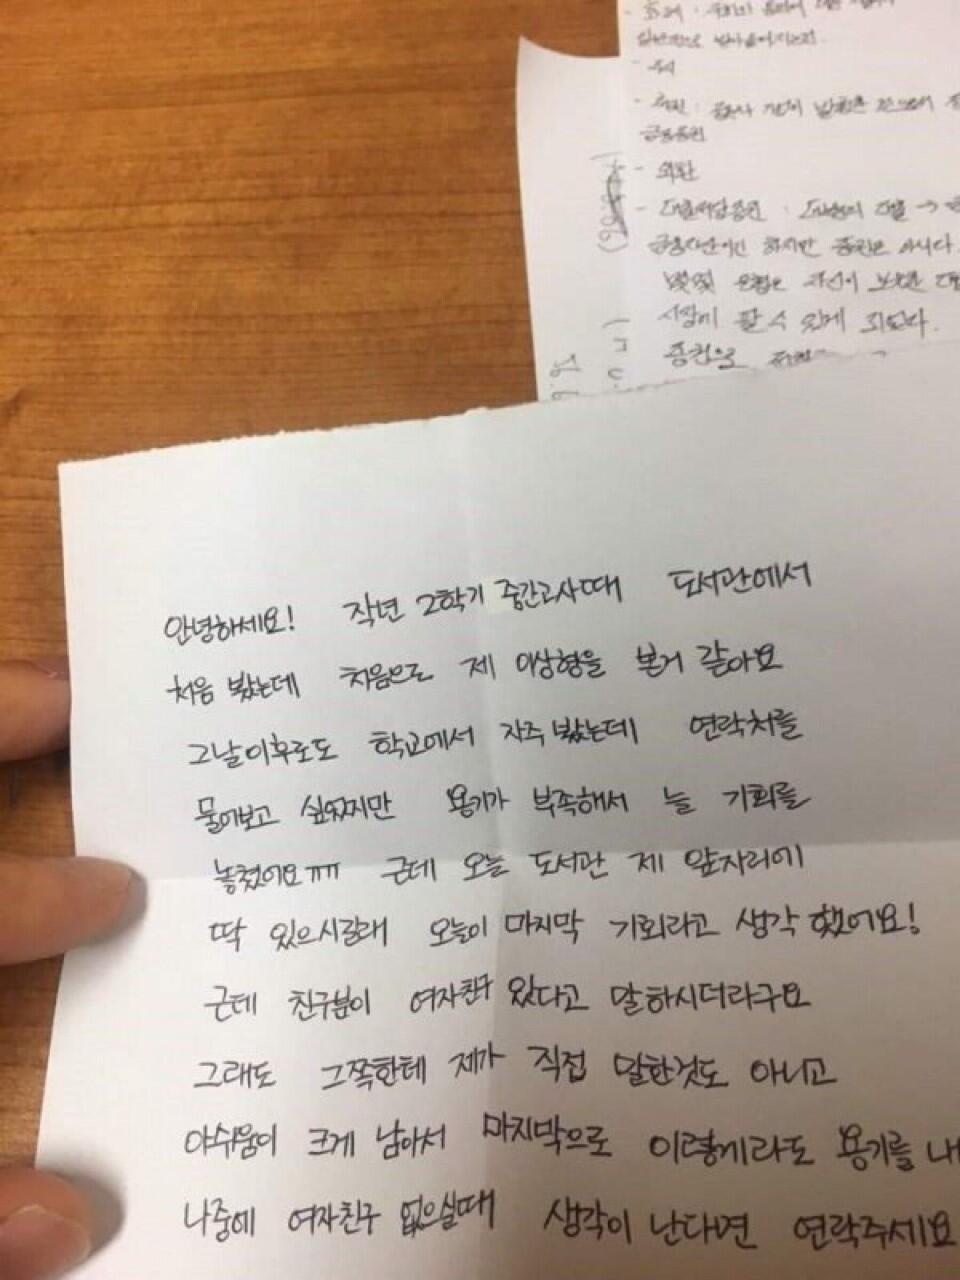 - 외환
시장에 팔 수 있게 된다.
안녕하세요! 작년 2학기 중간고사때 도서관에서
처음 봤는데 처음으로 제 이상형을 본거 같아요
그날이후로도 학교에서 자주 봤는데 연락처를
물어보고 싶었지만 용기가 부족해서 늘 기회를
놓쳤어요ㅠㅠ 근데 오늘 도서관 제 앞자리에
딱 있으시길래 오늘이 마지막 기회라고 생각 했어요!
근데 친구분이 여자친구 있다고 말하시더라구요
그래도 그쪽한테 제가 직접 말한것도 아니고
아쉬움이 크게 남아서 마지막으로 이렇게라도 용기를 내
나중에 여자친구 없으실때 생각이 난다면 연락주세요